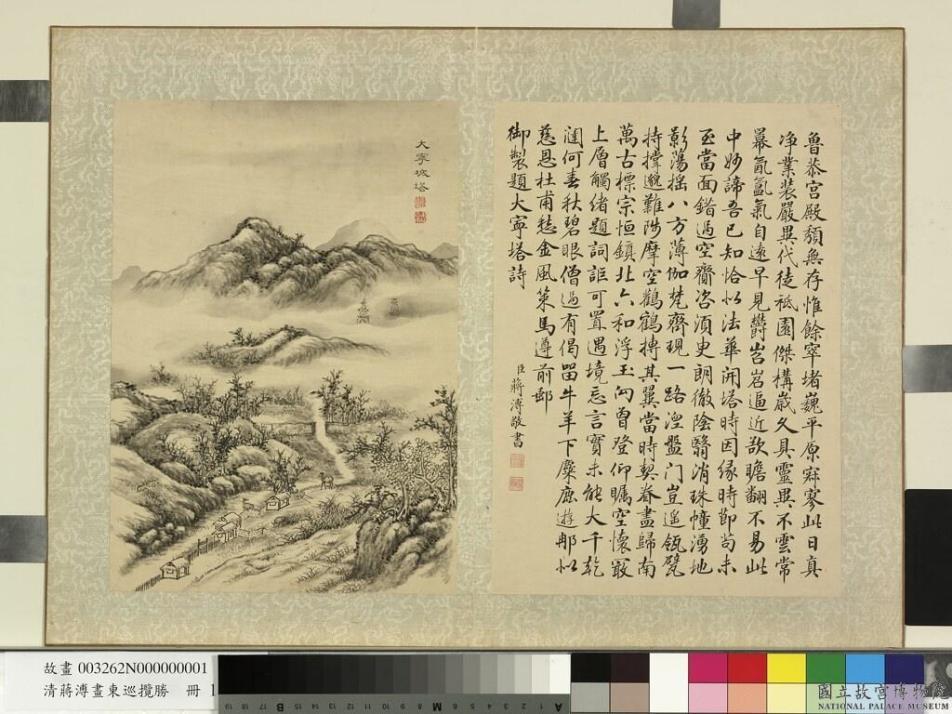 大寧城塔
魯恭宮殿頹無存惟餘窣堵巍平原寂寥此日真
淨業裝嚴異代徒祗園傑構歲久具靈異不雲常
羃氤氳氣自遠早見欝岧岧逼近欲瞻翻不易此
中妙諦吾已知恰似法華開塔時因緣時節苟未
至當面錯過空齎咨須臾朗徹陰翳消珠幢湧地
影蕩搖八方薄伽梵齊現一路涇盤門豈遙瓴甓
持撐邈難陟摩空鸛鶴摶其翼當時契眷盡歸南
萬古標宗恒鎮北六和浮玉向曾登仰矚空懷最
上層觸緒題詞詎可置遇境忘言實未能大千乾
闥何春秋碧眼僧過有偈留牛羊下麋鹿遊那似
慈恩杜甫愁金風策馬遵前邨
御製題大寧塔詩
臣蔣溥敬書
故畫 003262N000000001
清蔣溥畫東巡攬勝 冊 1
19 18 17 16 15 14 13 12 11 10 9 8 7 6 5 4 3 2 1
B M A
國立故宮博物院
NATIONAL PALACE MUSEUM